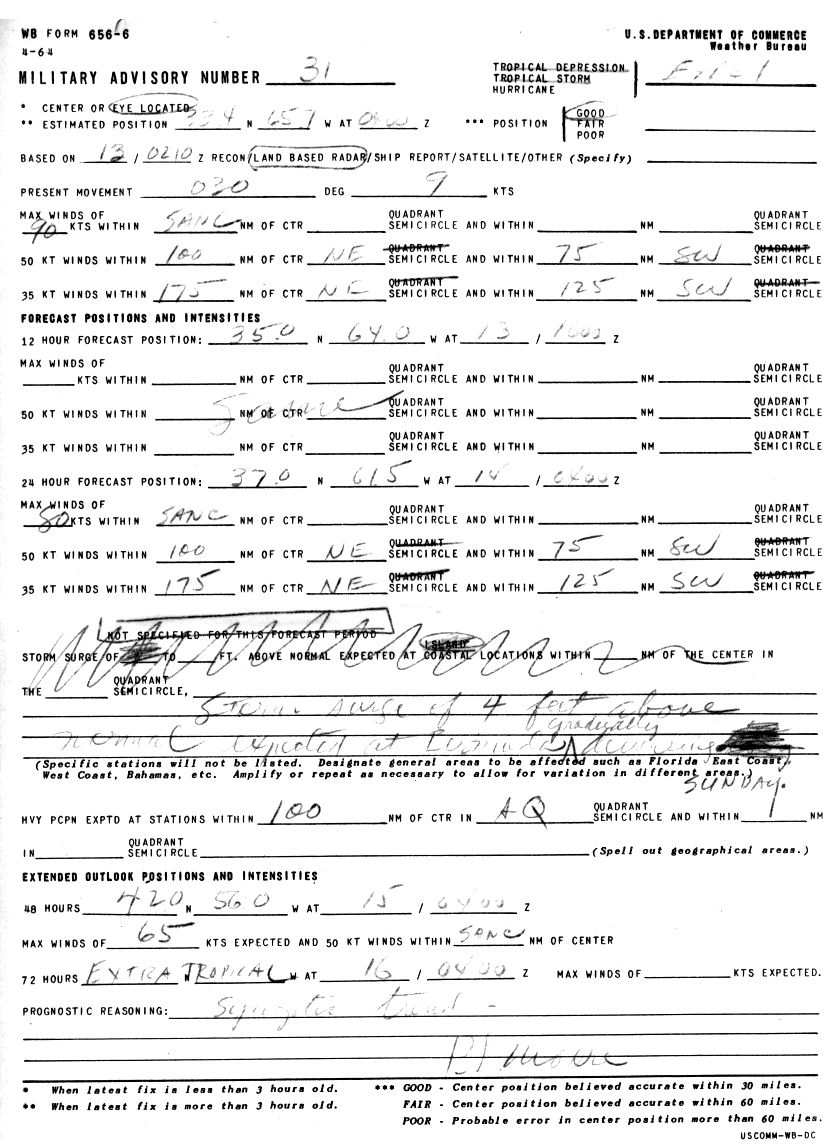 WB FORM 656-6 U.S. DEPARTMENT OF COMMERCE
4-64 Weather Bureau
MILITARY ADVISORY NUMBER 31 TROPICAL DEPRESSION
TROPICAL STORM
HURRICANE
* CENTER OR EYE LOCATED
** ESTIMATED POSITION 334 N 657 W AT 0400 Z *** POSITION GOOD
FAIR
POOR
BASED ON 13 / 0210 Z RECON/LAND BASED RADAR/SHIP REPORT/SATELLITE/OTHER (Specify)
PRESENT MOVEMENT 030 DEG 9 KTS
MAX WINDS OF QUADRANT QUADRANT
90 KTS WITHIN SANC NM OF CTR SEMICIRCLE AND WITHIN NM SEMICIRCLE
QUADRANT QUADRANT
50 KT WINDS WITHIN 100 NM OF CTR NE SEMICIRCLE AND WITHIN 75 NM SW SEMICIRCLE
QUADRANT QUADRANT
35 KT WINDS WITHIN 175 NM OF CTR NE SEMICIRCLE AND WITHIN 125 NM SW SEMICIRCLE
FORECAST POSITIONS AND INTENSITIES
12 HOUR FORECAST POSITION: 35.0 N 64.0 W AT 13 / 1600 Z
MAX WINDS OF QUADRANT QUADRANT
KTS WITHIN NM OF CTR SEMICIRCLE AND WITHIN NM SEMICIRCLE
QUADRANT QUADRANT
50 KT WINDS WITHIN Same NM OF CTR SEMICIRCLE AND WITHIN NM SEMICIRCLE
QUADRANT QUADRANT
35 KT WINDS WITHIN NM OF CTR SEMICIRCLE AND WITHIN NM SEMICIRCLE
24 HOUR FORECAST POSITION: 37.0 N 61.5 W AT 14 / 0400 Z
MAX WINDS OF QUADRANT QUADRANT
80 KTS WITHIN SANC NM OF CTR SEMICIRCLE AND WITHIN NM SEMICIRCLE
QUADRANT QUADRANT
50 KT WINDS WITHIN 100 NM OF CTR NE SEMICIRCLE AND WITHIN 75 NM SW SEMICIRCLE
QUADRANT QUADRANT
35 KT WINDS WITHIN 175 NM OF CTR NE SEMICIRCLE AND WITHIN 125 NM SW SEMICIRCLE
NOT SPECIFIED FOR THIS FORECAST PERIOD
ISLAND
STORM SURGE OF TO FT. ABOVE NORMAL EXPECTED AT COASTAL LOCATIONS WITHIN NM OF THE CENTER IN
QUADRANT
THE SEMICIRCLE,
Storm surge of 4 feet above
gradually
normal expected at Bermuda
(Specific stations will not be listed. Designate general areas to be affected such as Florida East Coast,
West Coast, Bahamas, etc. Amplify or repeat as necessary to allow for variation in different areas.)
SUNDAY.
QUADRANT
HVY PCPN EXPTD AT STATIONS WITHIN 100 NM OF CTR IN AQ SEMICIRCLE AND WITHIN NM
QUADRANT
IN SEMICIRCLE (Spell out geographical areas.)
EXTENDED OUTLOOK POSITIONS AND INTENSITIES
48 HOURS 420 N 560 W AT 15 / 0400 Z
MAX WINDS OF 65 KTS EXPECTED AND 50 KT WINDS WITHIN SANC NM OF CENTER
72 HOURS EXTRA TROPICAL N W AT 16 / 0400 Z MAX WINDS OF KTS EXPECTED.
PROGNOSTIC REASONING: Synoptic trend -
Moore
* When latest fix is less than 3 hours old. *** GOOD - Center position believed accurate within 30 miles.
** When latest fix is more than 3 hours old. FAIR - Center position believed accurate within 60 miles.
POOR - Probable error in center position more than 60 miles.
USCOMM-WB-DC